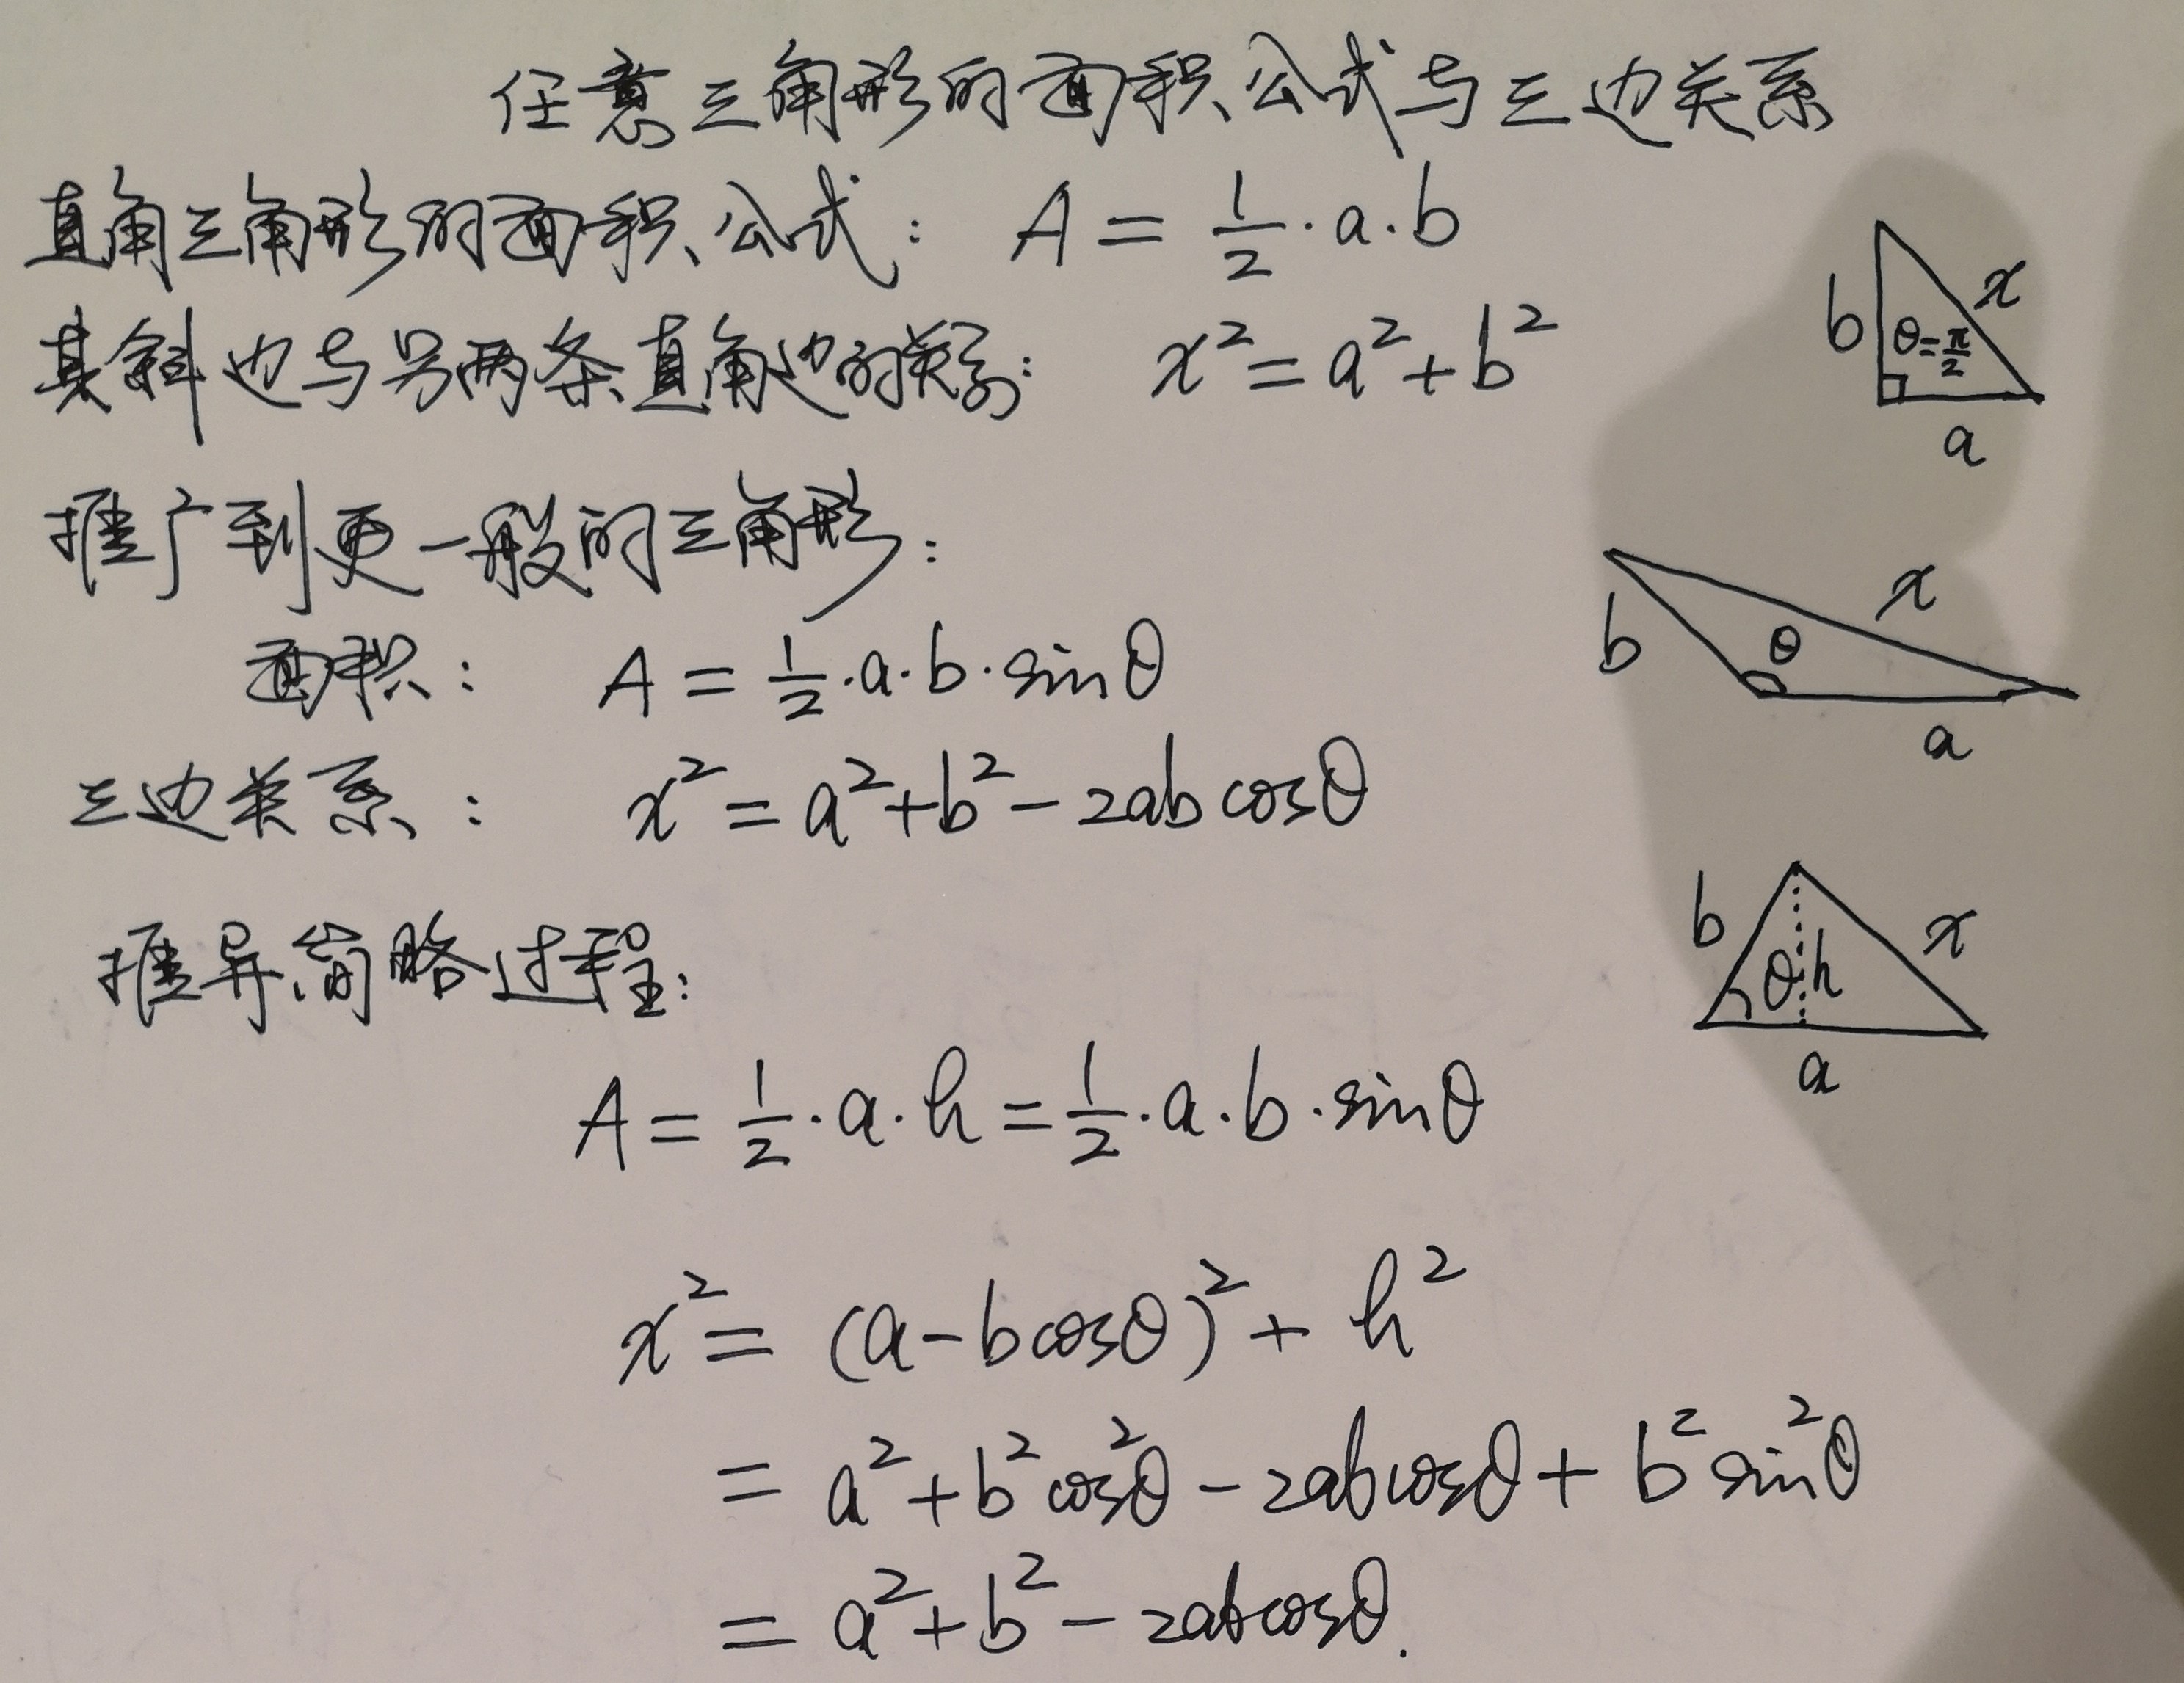 任意三角形的面积公式与三边关系
直角三角形的面积公式: A = 1/2 · a · b
其斜边与另两条直角边的关系: x² = a² + b²
b θ=π/2 x
a
推广到更一般的三角形:
面积: A = 1/2 · a · b · sinθ
b θ x
a
三边关系: x² = a² + b² − 2ab cosθ
推导简略过程:
b θ h x
a
A = 1/2 · a · h = 1/2 · a · b · sinθ
x² = (a − b cosθ)² + h²
= a² + b² cos²θ − 2ab cosθ + b² sin²θ
= a² + b² − 2ab cosθ.